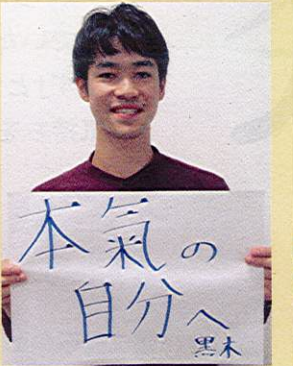 本氣の
自分へ
黒木